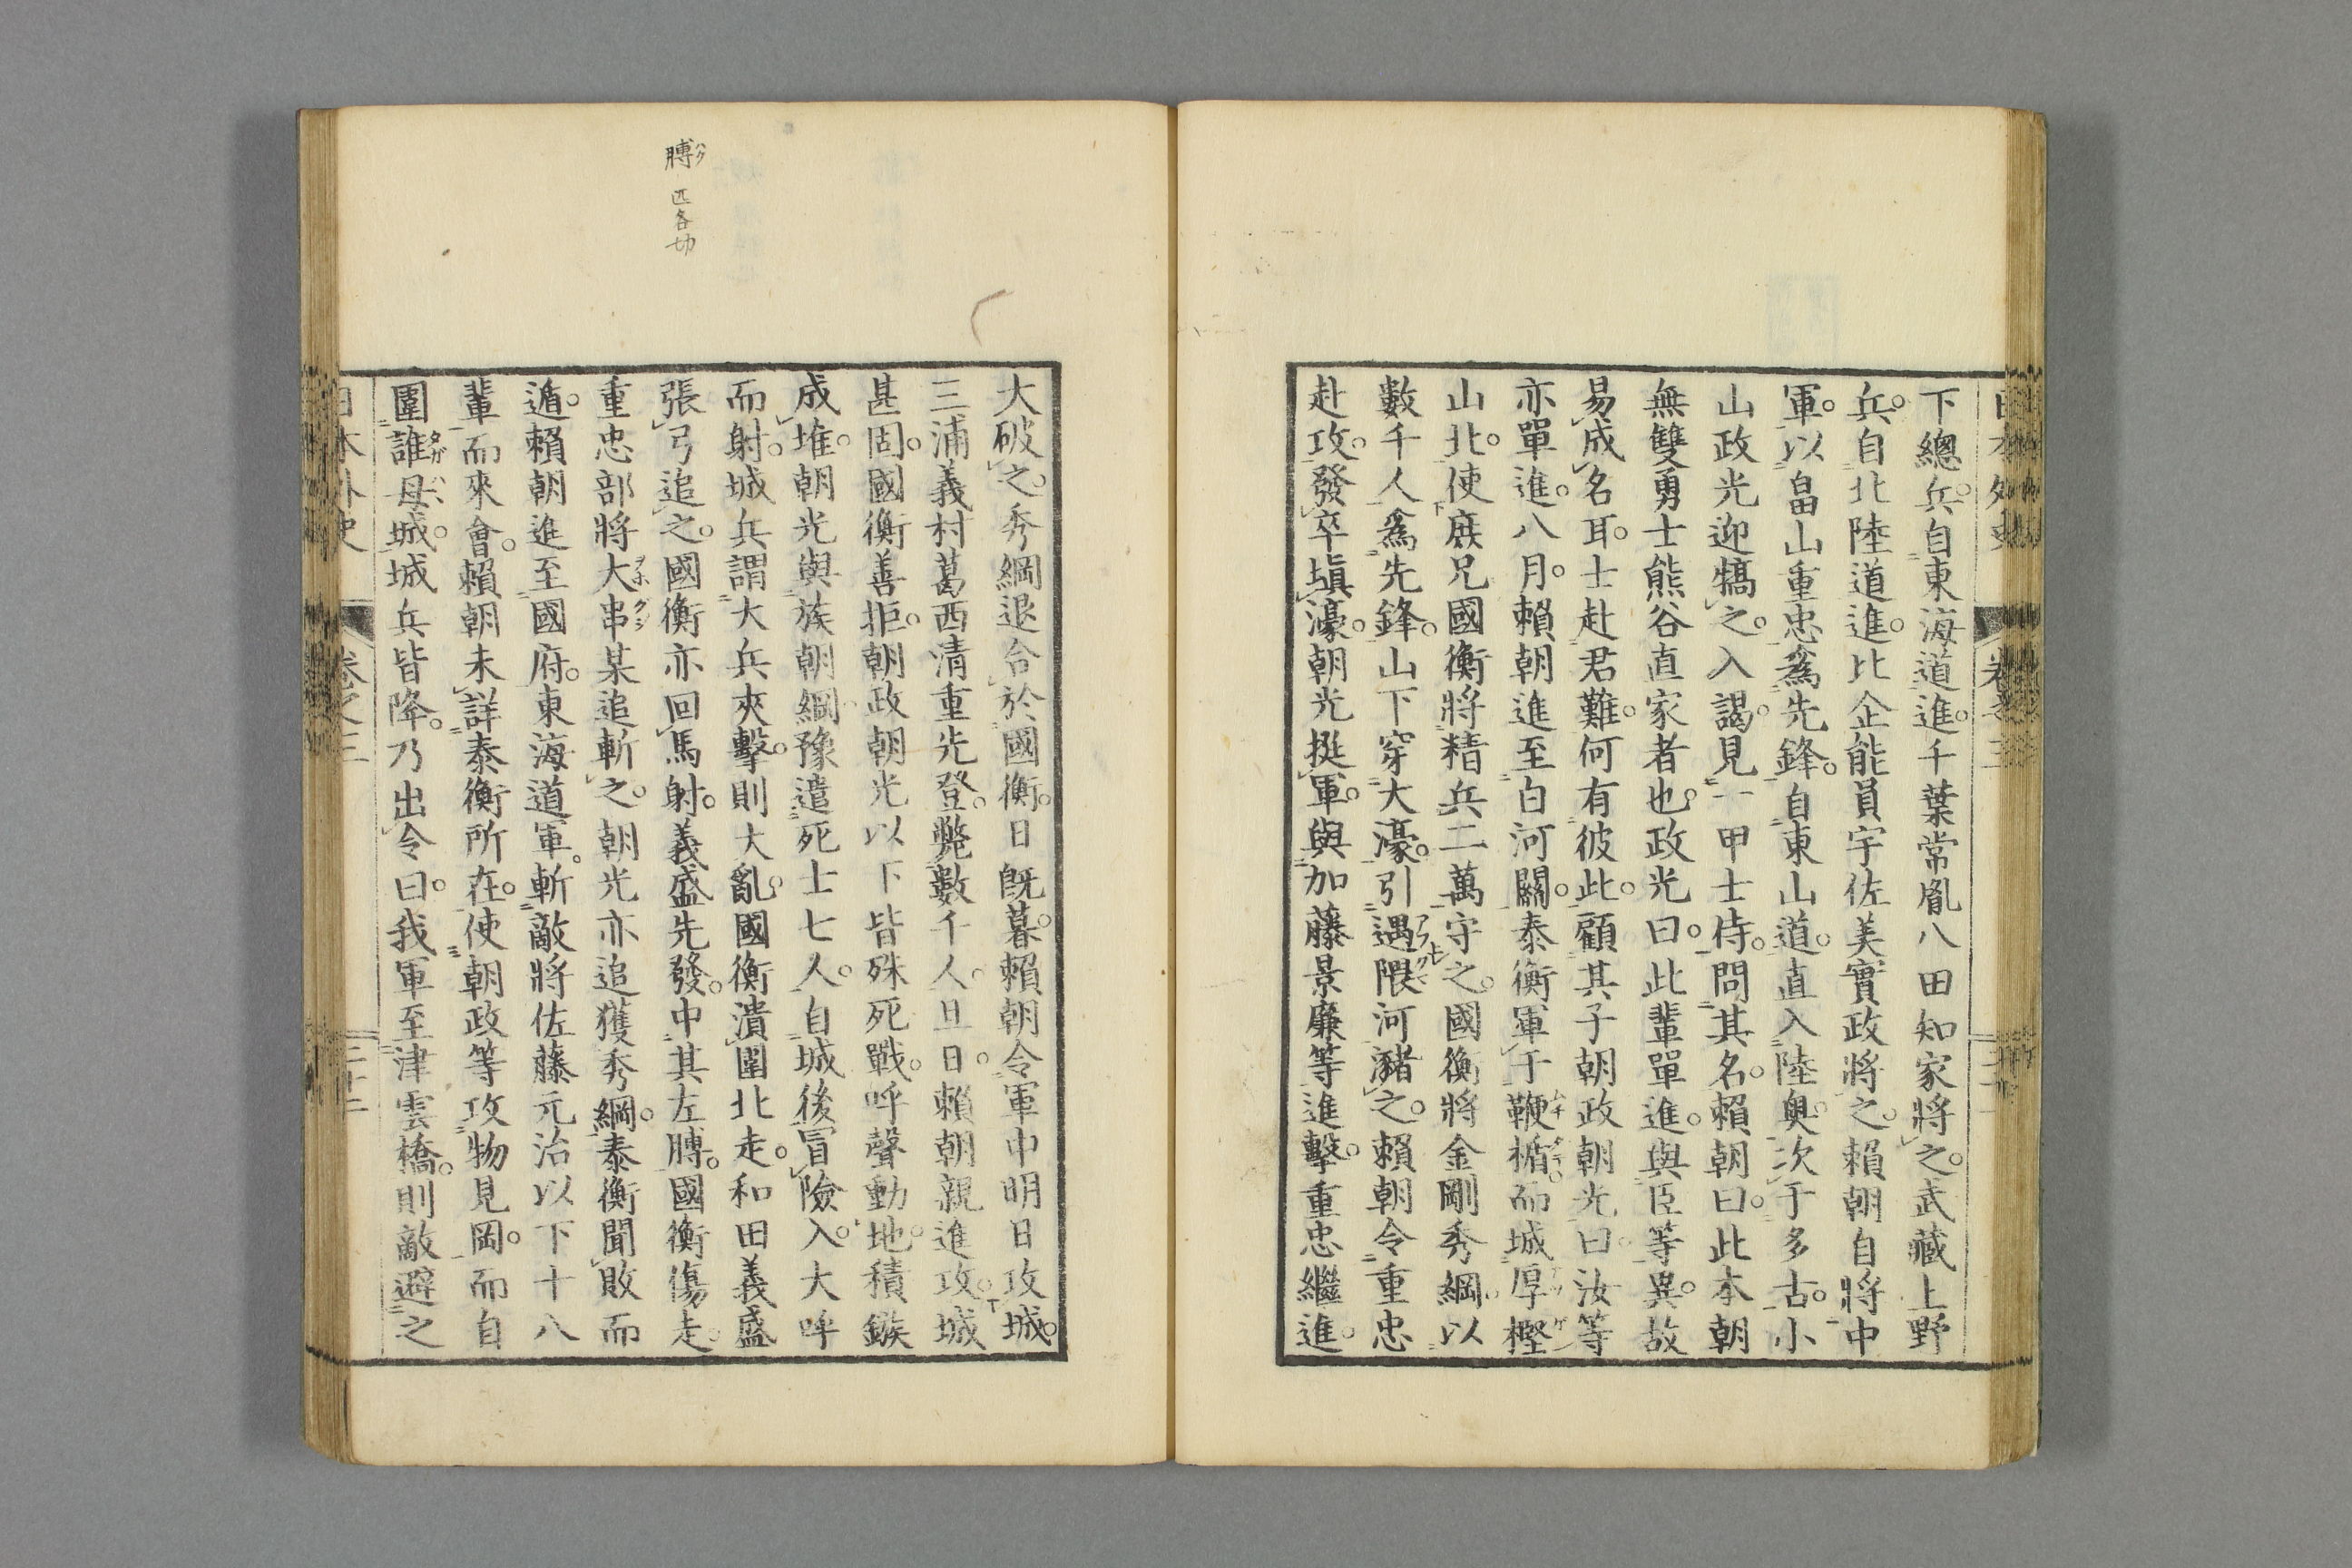 下總兵。自東海道進。千葉常胤八田知家將之。武藏上野
兵。自北陸道進。比企能員宇佐美實政將之。賴朝自將中
軍。以畠山重忠爲先鋒。自東山道。直入陸奥。次于多古。小
山政光迎犒之。入謁。見一甲士侍。問其名。賴朝曰。此本朝
無雙勇士熊谷直家者也。政光曰。此輩單進。與臣等異。故
易成名耳。士赴君難。何有彼此。顧其子朝政朝光曰。汝等
亦單進。八月。賴朝進至白河關。泰衡軍于鞭楯。而城厚樫
山北。使庶兄國衡將精兵二萬守之。國衡將金剛秀綱以
數千人爲先鋒。山下穿大濠。引遇隈河瀦之。賴朝令重忠
赴攻。發卒塡濠。朝光挺軍。與加藤景廉等進擊。重忠繼進。
大破之。秀綱退合於國衡。日既暮。賴朝令軍中明日攻城。
三浦義村葛西清重先登。斃數千人。旦日。賴朝親進攻。城
甚固。國衡善拒。朝政朝光以下皆殊死戰。呼聲動地。積鏃
成堆。朝光與族朝綱豫遣死士七人。自城後冒險入。大呼
而射。城兵謂大兵夾擊。則大亂。國衡潰圍北走。和田義盛
張弓追之。國衡亦回馬射。義盛先發。中其左膊。國衡傷走。
重忠部將大串某追斬之。朝光亦追獲秀綱。泰衡聞敗而
遁。賴朝進至國府。東海道軍。斬敵將佐藤元治以下十八
輩而來會。賴朝未詳泰衡所在。使朝政等攻物見岡。而自
圍誰母城。城兵皆降。乃出令曰。我軍至津雲橋。則敵避之
日本外史 卷之三 二十二
膊 ハク 匹各切